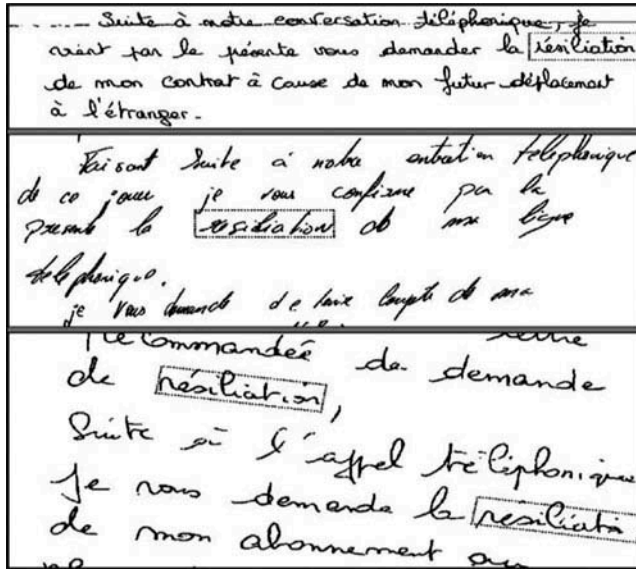 Suite à notre conversation téléphonique, je
vient par la présente vous demander la résiliation
de mon contrat à cause de mon futur déplacement
à l'étranger.
Faisant suite à notre entretien téléphonique
de ce jour je vous confirme par la
presente la resiliation de ma ligne
telephonique.
je vous demande de faire compte de ma
recommandée
de demande
de résiliation,
Suite à l'appel téléphonique
je vous demande la résiliatio
de mon abonnement au